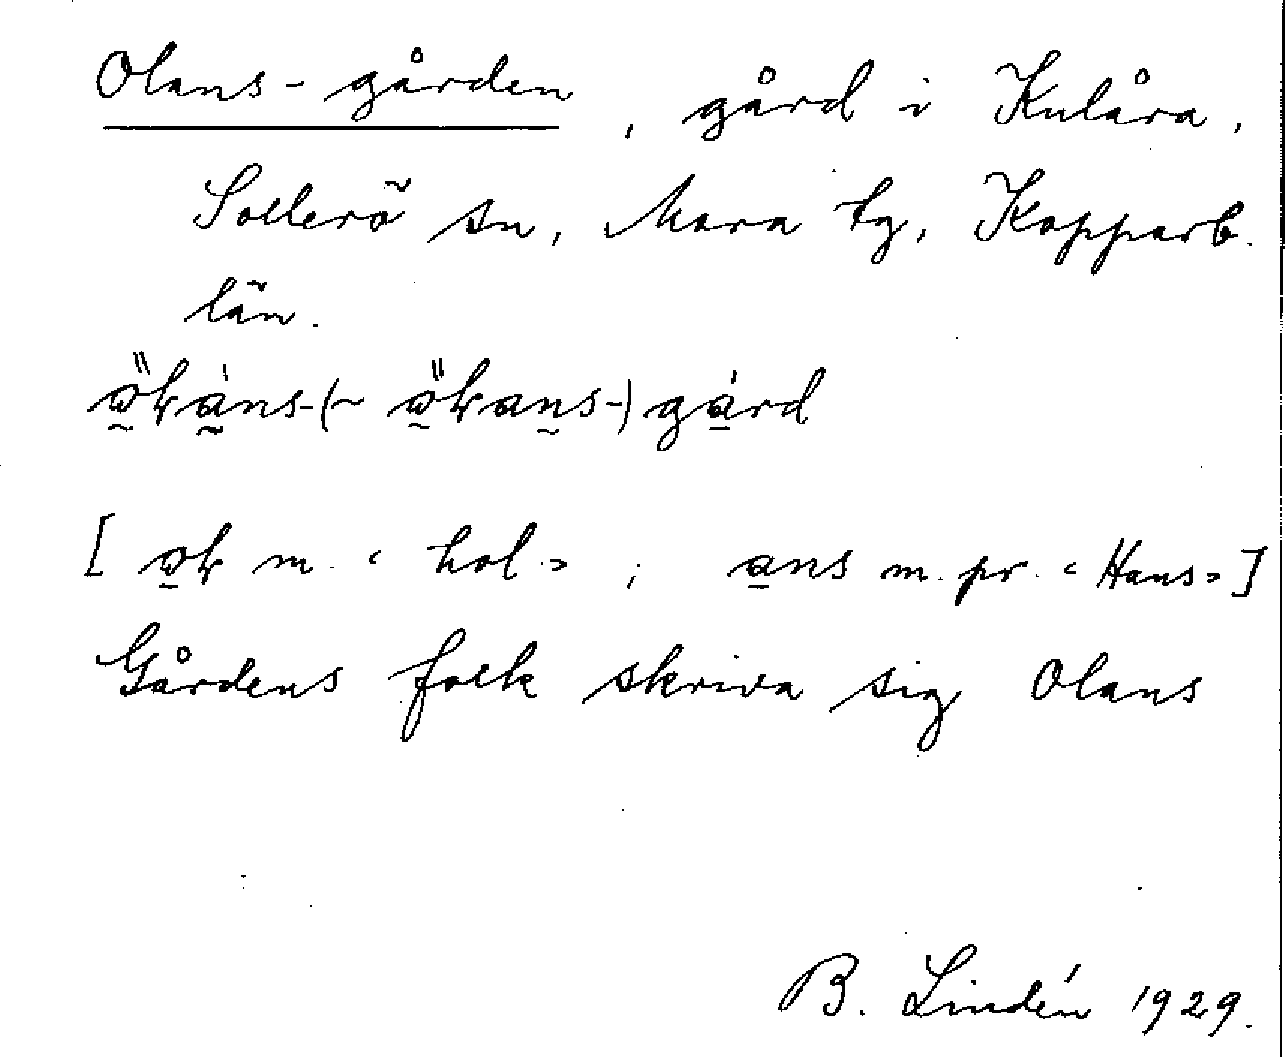 Olans-gården, gård i Kulåra,
Sollerö sn, Mora tg, Kopparb.
län.
gård
[ m. ‹ hol › ; ans m. pr. ‹ Hans › ]
Gårdens folk skriva sig Olans
B. Lindén 1929.